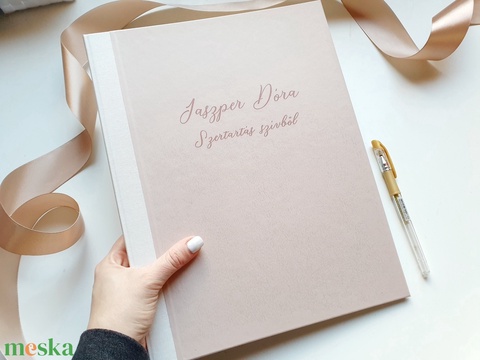 Jaszper Dóra
Szertartás szívből
meska